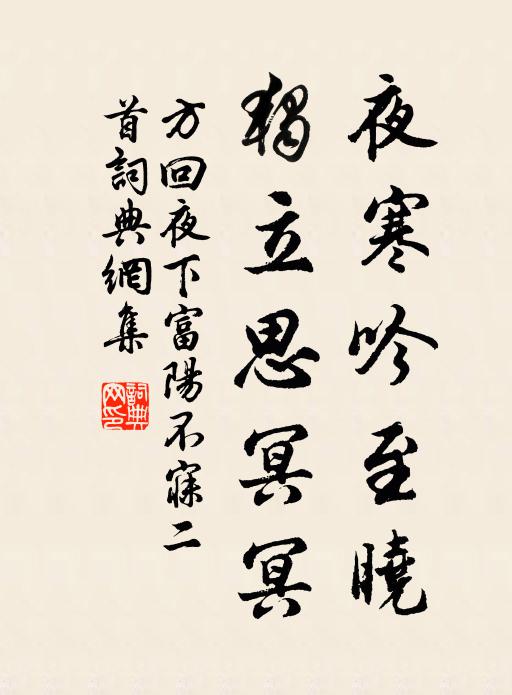 夜寒吟至曉
獨立思冥冥
方回夜下富陽不寐二
首詞典網集
詞典
網印